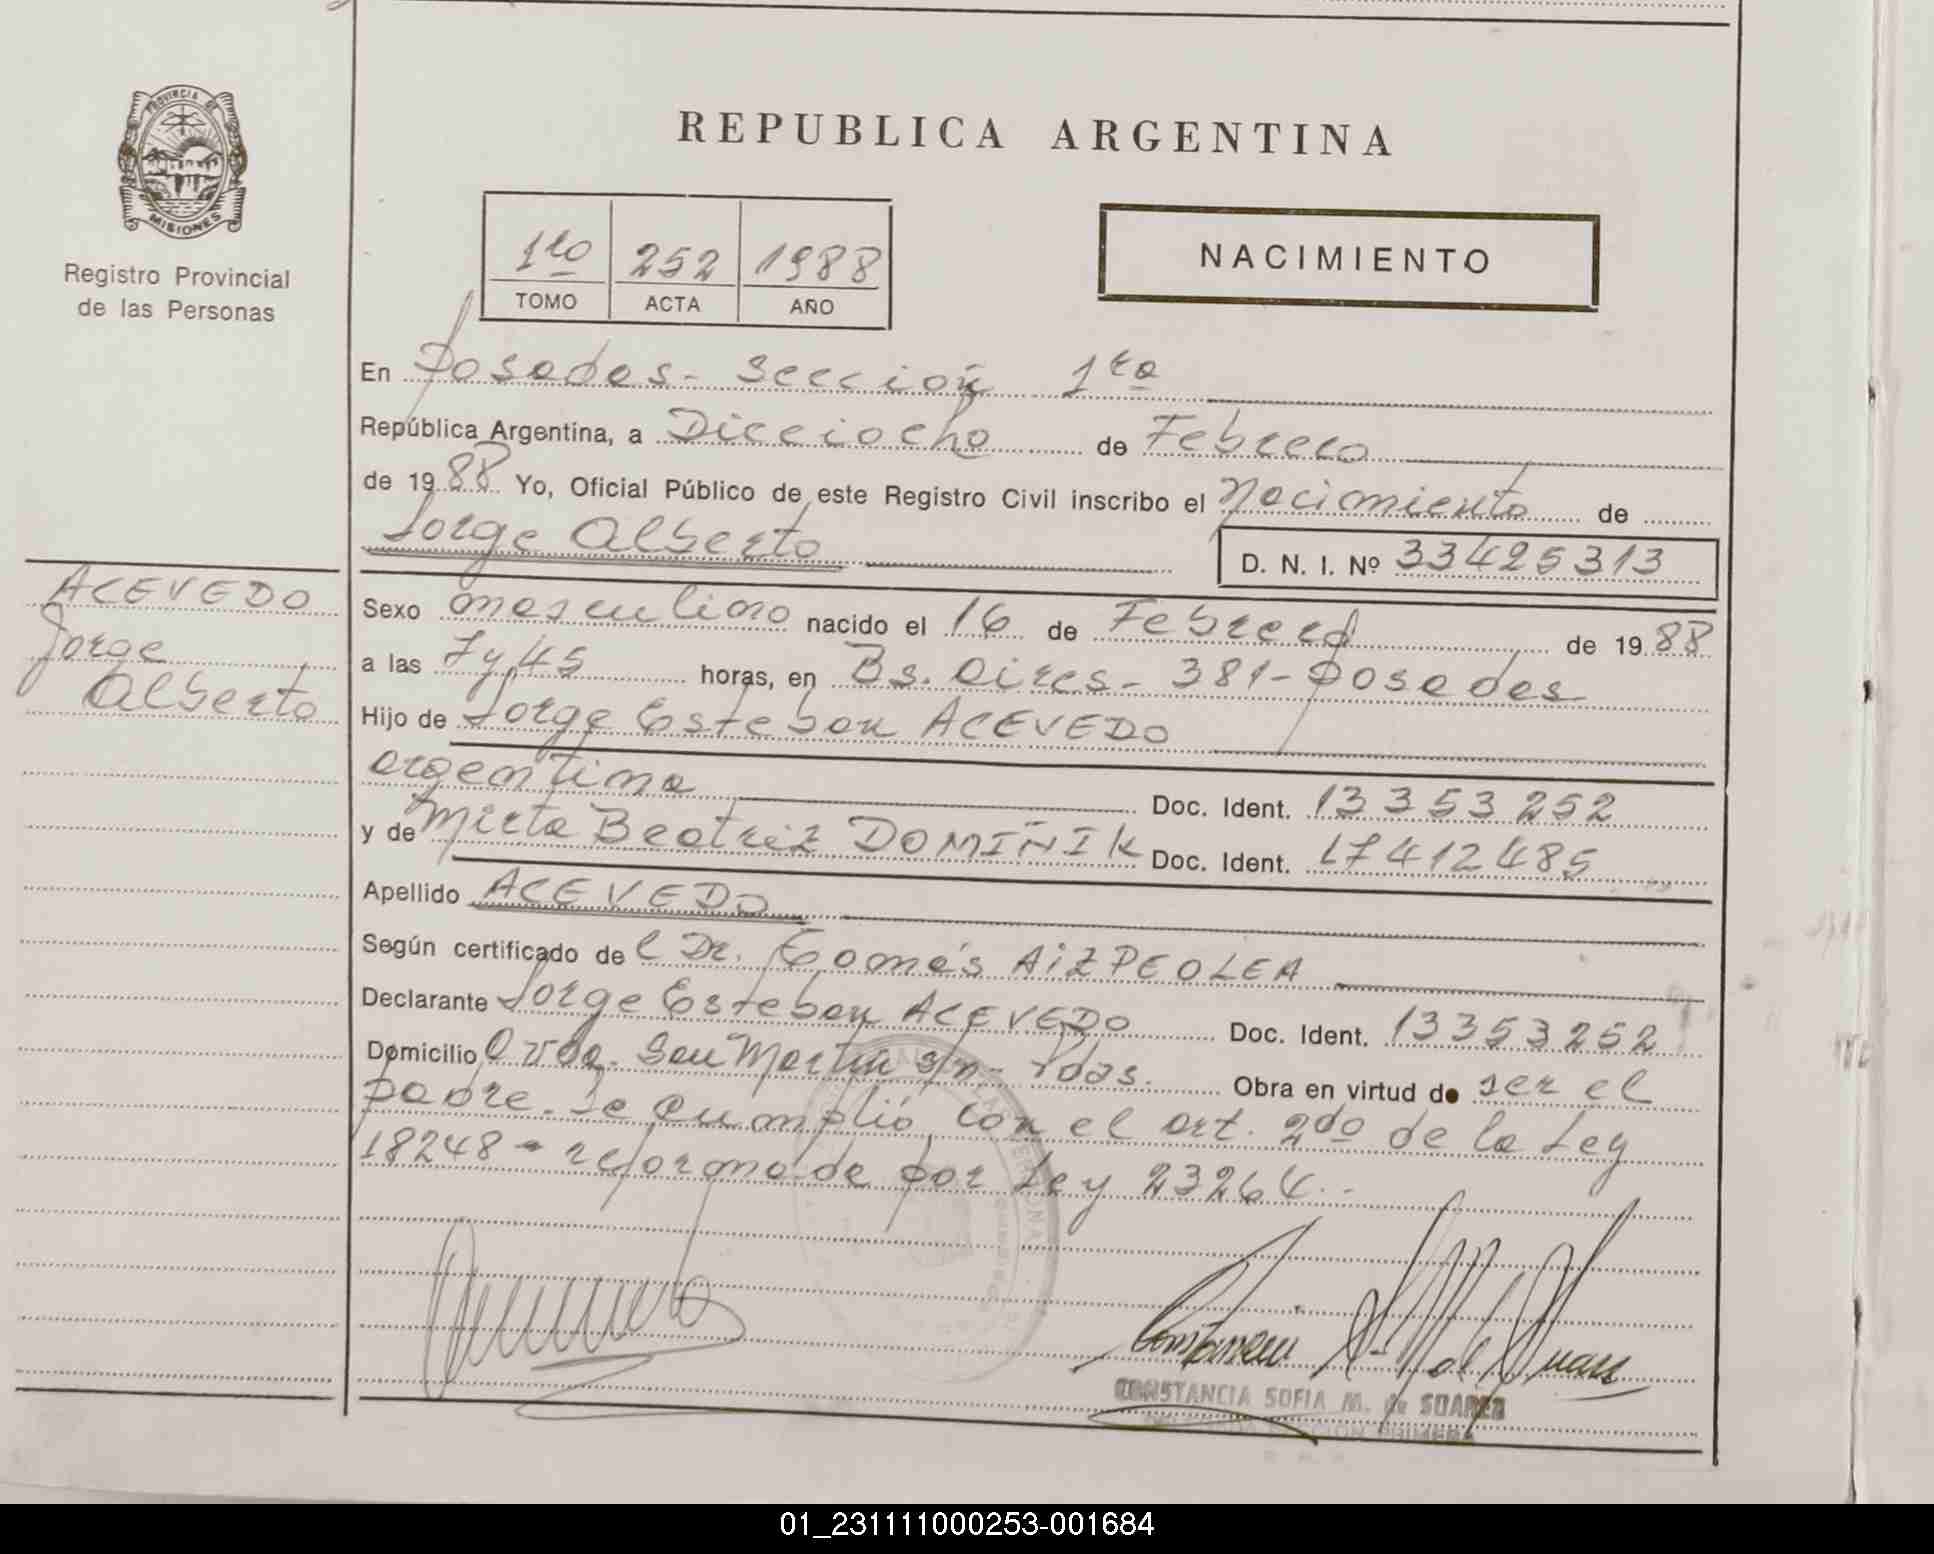 PROVINCIA DE
MISIONES
Registro Provincial
de las Personas
REPUBLICA ARGENTINA
1ro 252 1988
TOMO ACTA AÑO
NACIMIENTO
En Posadas - Sección 1ra
República Argentina, a Dieciocho de Febrero
de 1988 Yo, Oficial Público de este Registro Civil inscribo el Nacimiento de
Jorge Alberto
D. N. I. Nº 33425313
ACEVEDO
Jorge
Alberto
Sexo masculino nacido el 16 de Febrero de 1988
a las 7 y 45 horas, en Bs. Aires - 381 - Posadas
Hijo de Jorge Esteban ACEVEDO
argentina Doc. Ident. 13353252
y de Mirta Beatriz DOMIÑIK Doc. Ident. 17412485
Apellido ACEVEDO
Según certificado del Dr. Tomás AIZPEOLEA
Declarante Jorge Esteban ACEVEDO Doc. Ident. 13353252
Domicilio Avda. San Martin s/n - Pdas. Obra en virtud de ser el
padre. Se cumplió con el art. 2do de la Ley
18248 - reformada por Ley 23264.-
CONSTANCIA SOFIA M. de SUAREZ
01_231111000253-001684